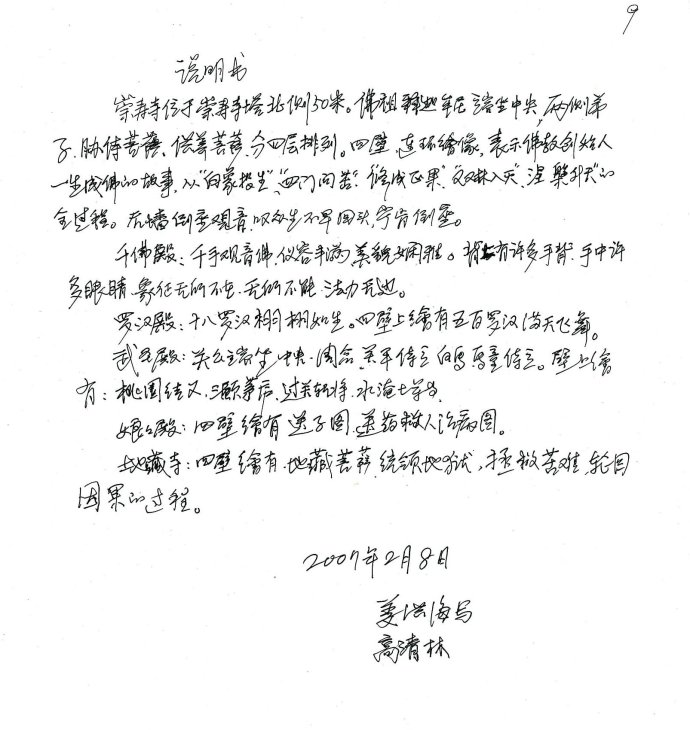 9
说明书
崇寿寺位于崇寿寺塔北侧50米。佛祖释迦牟尼端坐中央,两侧弟
子、胁侍菩萨、供养菩萨,分四层排列。四壁,连环繪像,表示佛教创始人
一生成佛的故事,从“白象投生”“四门问苦”“修成正果”“双林入灭”“涅槃升天”的
全过程。后墙倒坐观音,叹众生不早回头,宁肯倒坐。
千佛殿:千手观音佛,仪容丰满,美貌娴雅。背上有许多手臂,手中许
多眼睛,象征无所不在,无所不能,法力无边。
罗汉殿:十八罗汉栩栩如生。四壁上繪有五百罗汉满天飞舞。
武圣殿:关公端坐中央,周仓、关平侍立。壁上繪
有:桃園结义、三顾茅庐、过关斩将、水淹七军
娘娘殿:四壁繪有送子图,送药救人治病图。
地藏寺:四壁繪有地藏菩萨,统领地狱,拯救苦难,轮回
因果的过程。
2007年2月8日
姜洪海写
高清林